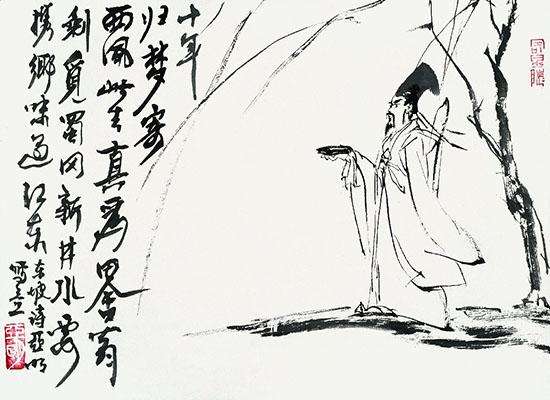 十年
归梦寄
西风此去真为田舍翁
剩觅蜀冈新井水要
携乡味过江东
东坡诗亚明
写意